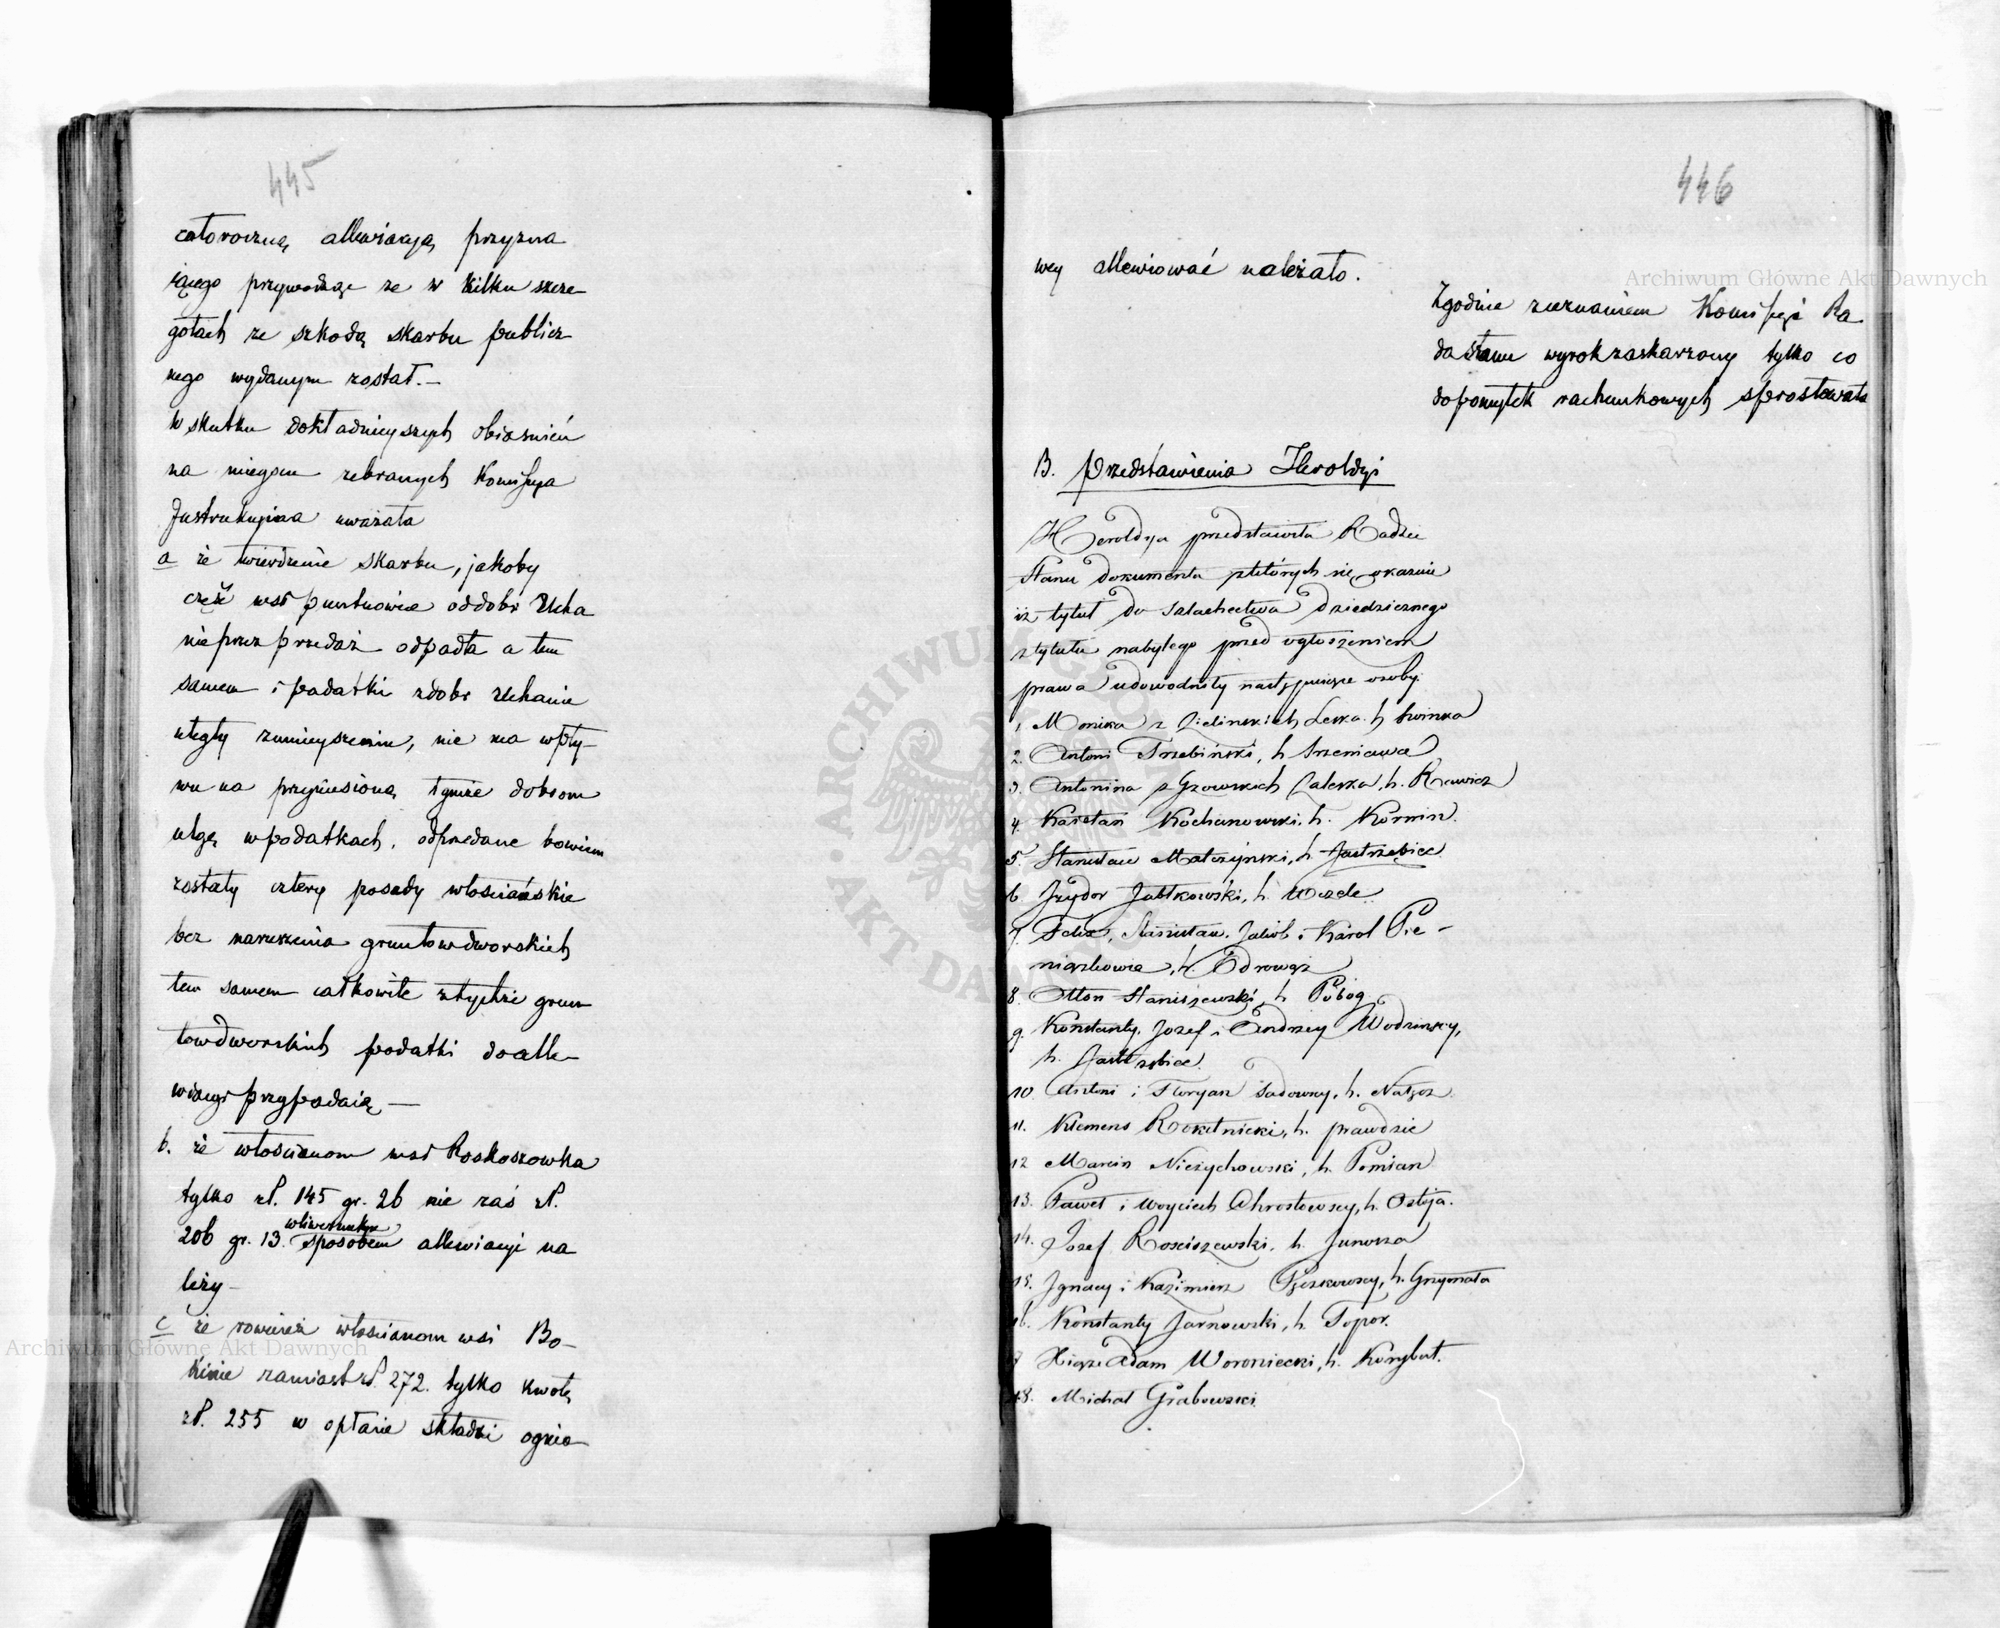 445
całoroczną allewiacyą przyzna
iącego przywodząc ze w kilku szcze-
gołach ze szkodą skarbu publicz
nego wydanym został.—
W skutku dokładnieyszych obiasnień
na mieyscu zebranych Kommissya
Instrukcyina uważała
a że twierdzenie skarbu, jakoby
część wsi pustnowice od dobr Ucha
nie przez przedaż odpadła a tem
samem i podatki z dobr Uchanie
uległy zmnieyszeniu, nie ma wpły-
wu na przyniesioną tymże dobrom
ulgę w podatkach, odprzedane bowiem
zostały cztery posady włosciańskie
bez naruszenia gruntow dworskich
tem samem całkowite z tychże grun
tow dworskich podatki do alle-
wiacyi przypadaią —
b. że włoscianom wsi Roskoszowka
tylko zł. 145 gr. 26 nie zaś zł.
206 gr. 13. sposobem allewiacyi na
leży —
c że rownież włoscianom wsi Bo-
kinie zamiast zł. 272. tylko kwotę
zł. 255 w opłacie składki ognio
446
wey allewiować należało.
Zgodnie z uznaniem Komissyi Ra
da Stanu wyrok zaskarzony tylko co
do pomyłek rachunkowych sprostowała
B. Przedstawienia Heroldyi
Heroldya przedstawiła Radzie
Stanu dokumenta z których się okazuie
iż tytuł do szlachectwa dziedzicznego
z tytułu nabytego przed ogłoszeniem
prawa udowodniły następuiące osoby.
1, Monika z Zielinskich Leska h Swinka
2. Antoni Trzebiński, h Szreniawa
3. Antonina z Gzowskich Zaleska, h. Rawicz
4. Kajetan Kochanowski, h. Korwin.
5. Stanisław Małczyński, h Jastrzębiec
6. Izydor Jabłkowski, h. Wczele
7. Felix, Stanisław, Jakób i Karol Pie-
niążkowie, h. Odrowąż
8. Otton Staniszewski, h Pobog
9. Konstanty, Jozef i Andrzey Wodzinscy,
h. Jastrzębiec
10. Antoni i Floryan Sadowscy, h. Nałęcz
11. Klemens Rokitnicki, h. prawdzic
12 Marcin Nieżychowski, h. Pomian
13. Paweł i Woyciech Chrostowscy, h. Ostoja.
14. Jozef Rosciszewski, h. Junosza
15. Ignacy i Kazimierz Pęczkowscy, h. Grzymała
16. Konstanty Jarnowski, h. Topor.
17 Xiąże Adam Woroniecki, h. Korybut.
18. Michał Grabowski